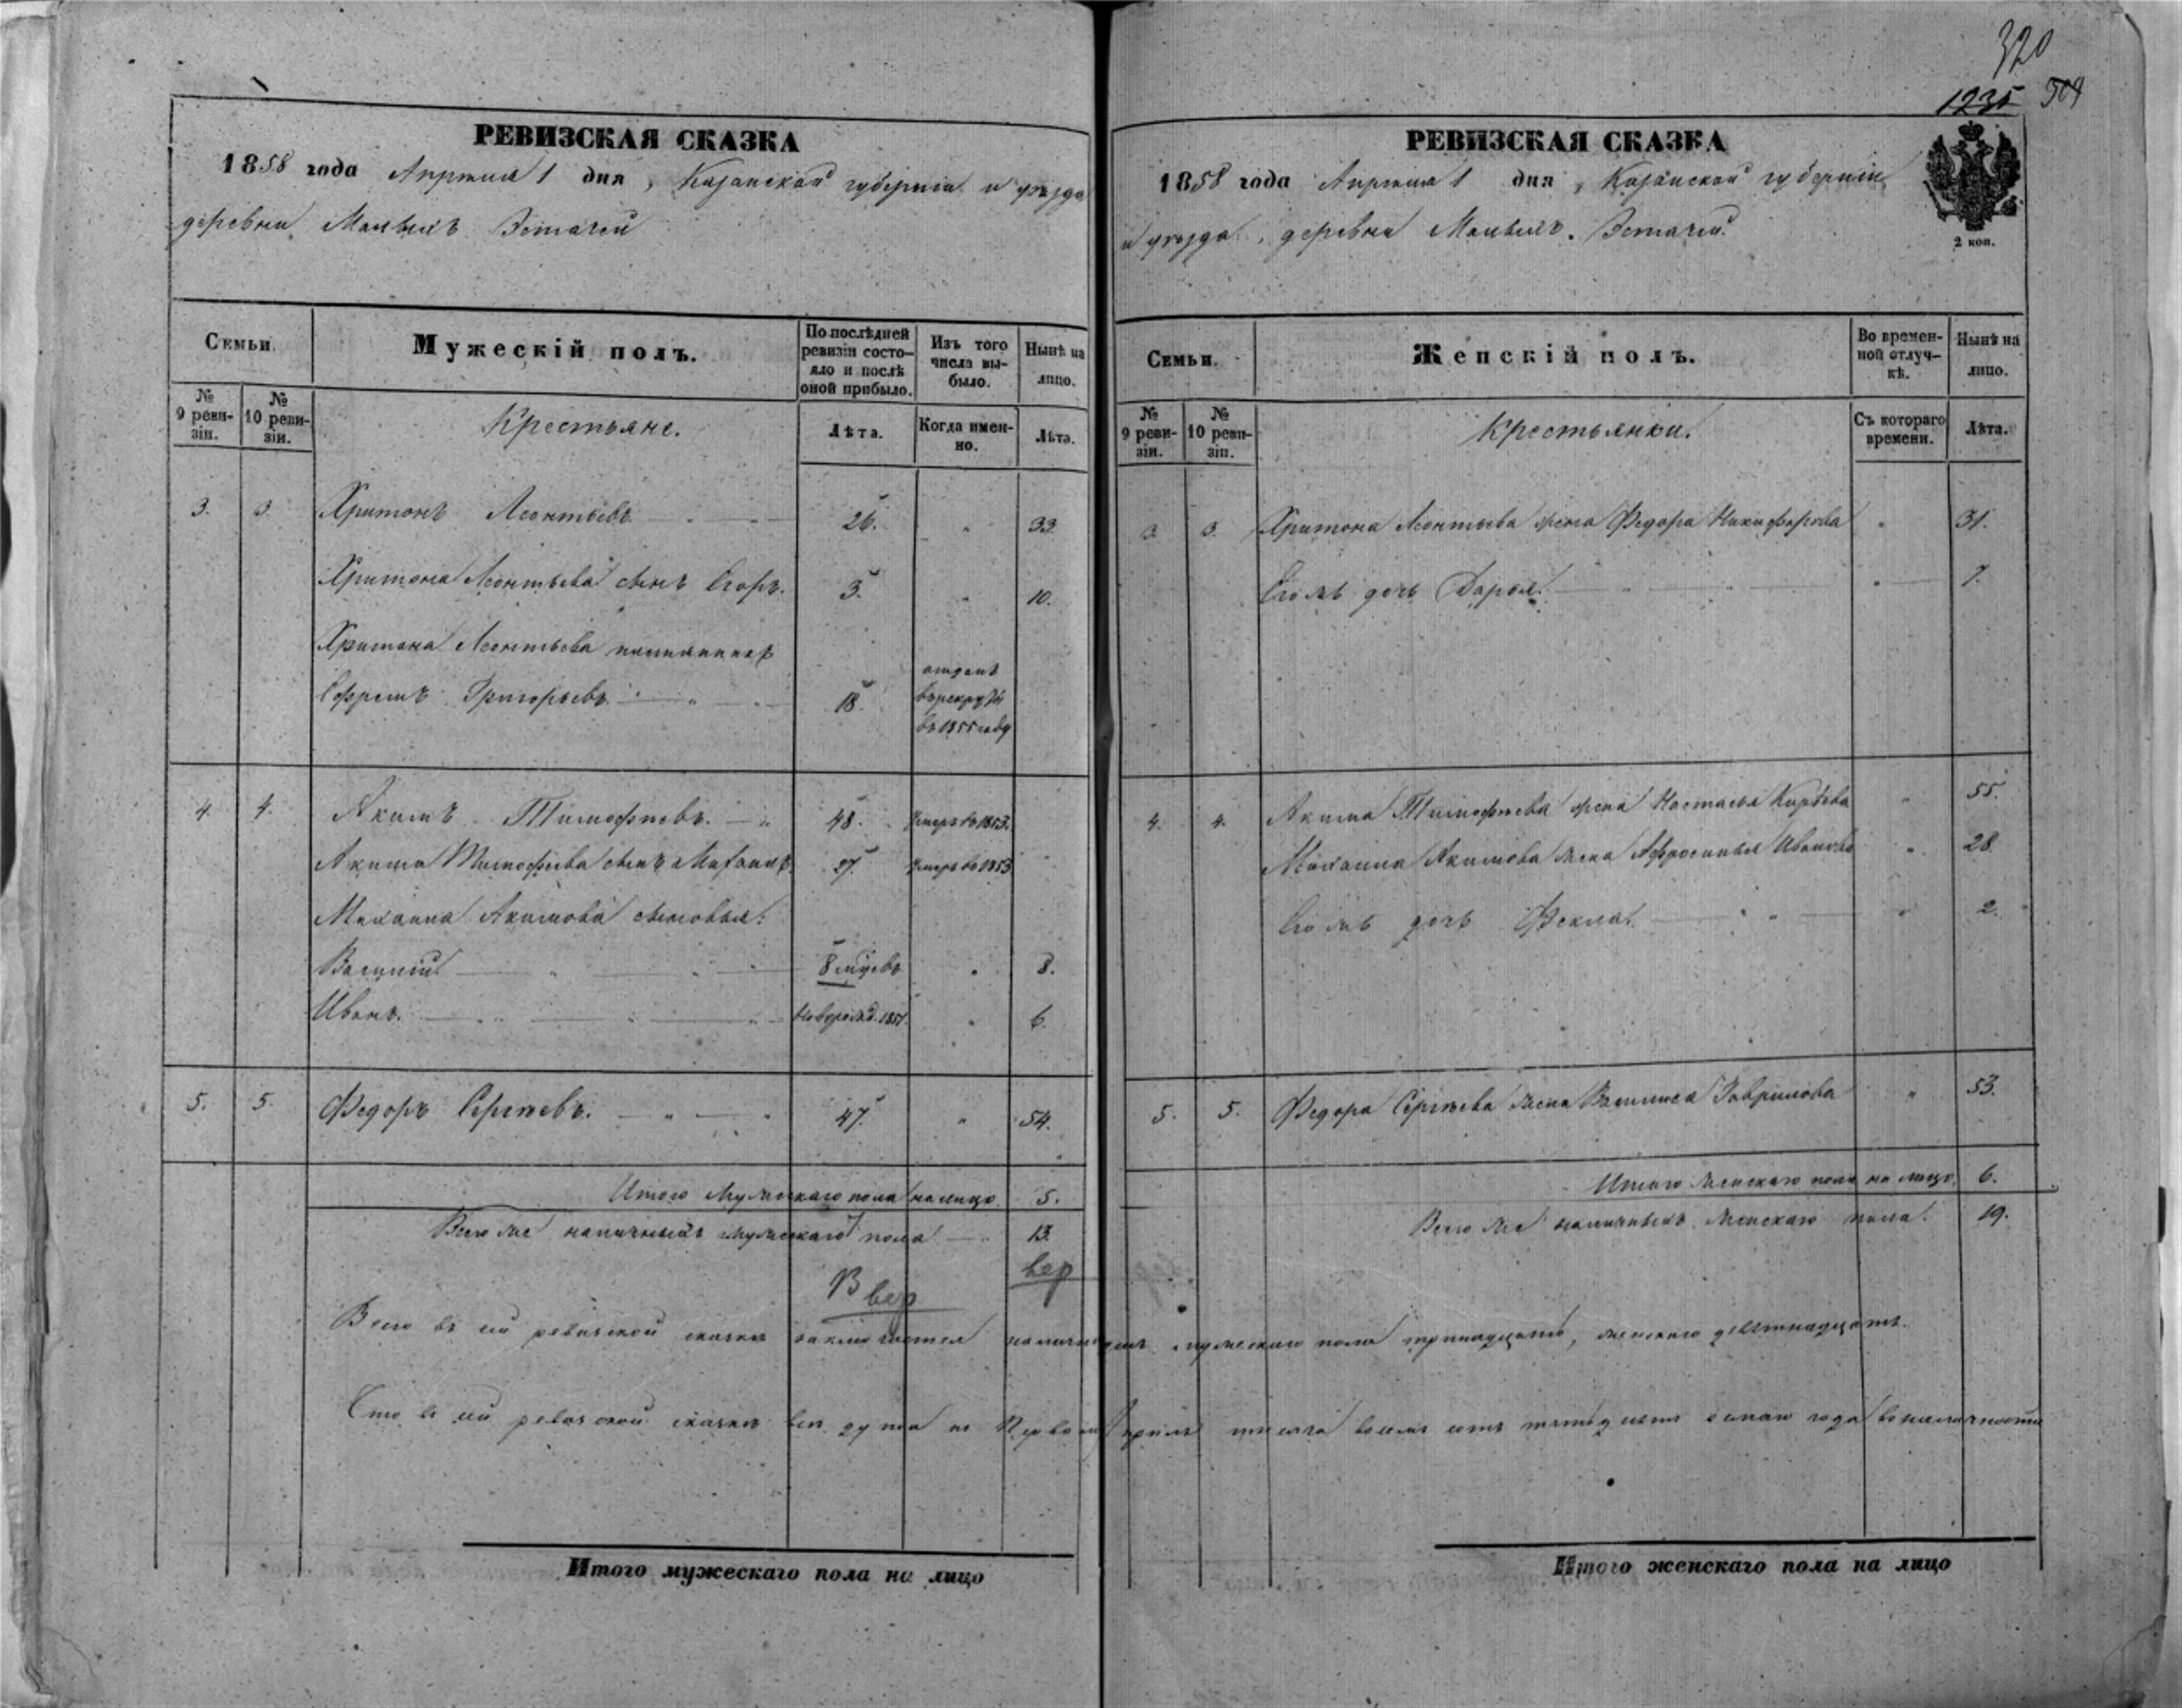 320
1235 504
РЕВИЗСКАЯ СКАЗКА
1858 года Апрѣля 1 дня, Казанской губерніи и уѣзда
деревни Малыхъ Эстачей
Семьи.
Мужескій полъ.
По послѣдней ревизіи состояло и послѣ оной прибыло.
Изъ того числа выбыло.
Нынѣ на лицо.
№ 9 ревизіи.
№ 10 ревизіи.
Крестьяне.
Лѣта.
Когда именно.
Лѣта.
3. 3. Хритонъ Леонтьевъ 26. " 33.
Хритона Леонтьева сынъ Егоръ. 3. " 10.
Хритона Леонтьева племянникъ
Ефремъ Григорьевъ. 18. отданъ в рекруты въ 1855 году
4. 4. Акимъ Тимофѣевъ. 48. Умеръ въ 1853.
Акима Тимофѣева сынъ Михаилъ 27. Умеръ въ 1853
Михаила Акимова сыновья:
Василій 8 мѣсевъ " 8.
Иванъ. Новорожд. 1851. " 6.
5. 5. Федоръ Сергѣевъ. 47. " 54.
Итого мужескаго пола на лицо 5.
Всего же наличныхъ мужескаго пола 13.
вер
В вер
РЕВИЗСКАЯ СКАЗКА
1858 года Апрѣля 1 дня, Казанской губерніи
и уѣзда, деревни Малыхъ. Эстачей.
2 коп.
Семьи.
Женскій полъ.
Во временной отлучкѣ.
Нынѣ на лицо.
№ 9 ревизіи.
№ 10 ревизіи.
Крестьянки.
Съ котораго времени.
Лѣта.
3. 3. Хритона Леонтьева жена Федора Никифорова " 31.
Его жъ дочь Дарья. " 7.
4. 4. Акима Тимофѣева жена Настасья " 55.
Михаила Акимова жена Афросинья Иванова " 28.
Его жъ дочь Фекла. " 2.
5. 5. Федора Сергѣева жена Василиса Гаврилова " 53.
Итого женскаго пола на лицо 6.
Всего же наличныхъ женскаго пола. 19.
Всего въ сей ревизской сказкѣ заключается наличныхъ мужескаго пола тринадцать, женскаго девятнадцать.
Что въ сей ревизской сказкѣ всѣ души по Первое Апрѣля тысяча восемь сотъ пятьдесятъ осьмаго года въ наличности
Итого мужескаго пола на лицо
Итого женскаго пола на лицо